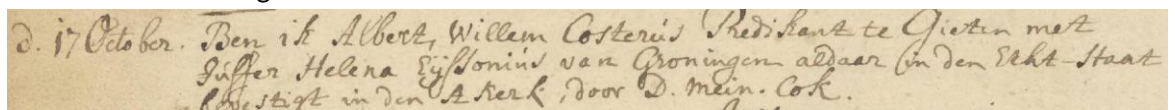 d. 17 October. Ben ik Albert, Willem Costerus Predikant te Gieten met
Juffer Helena Eijssonius van Groningen aldaar in den Echt-Staat
bevestigt in den A Kerk, door D. Mein. Cok.